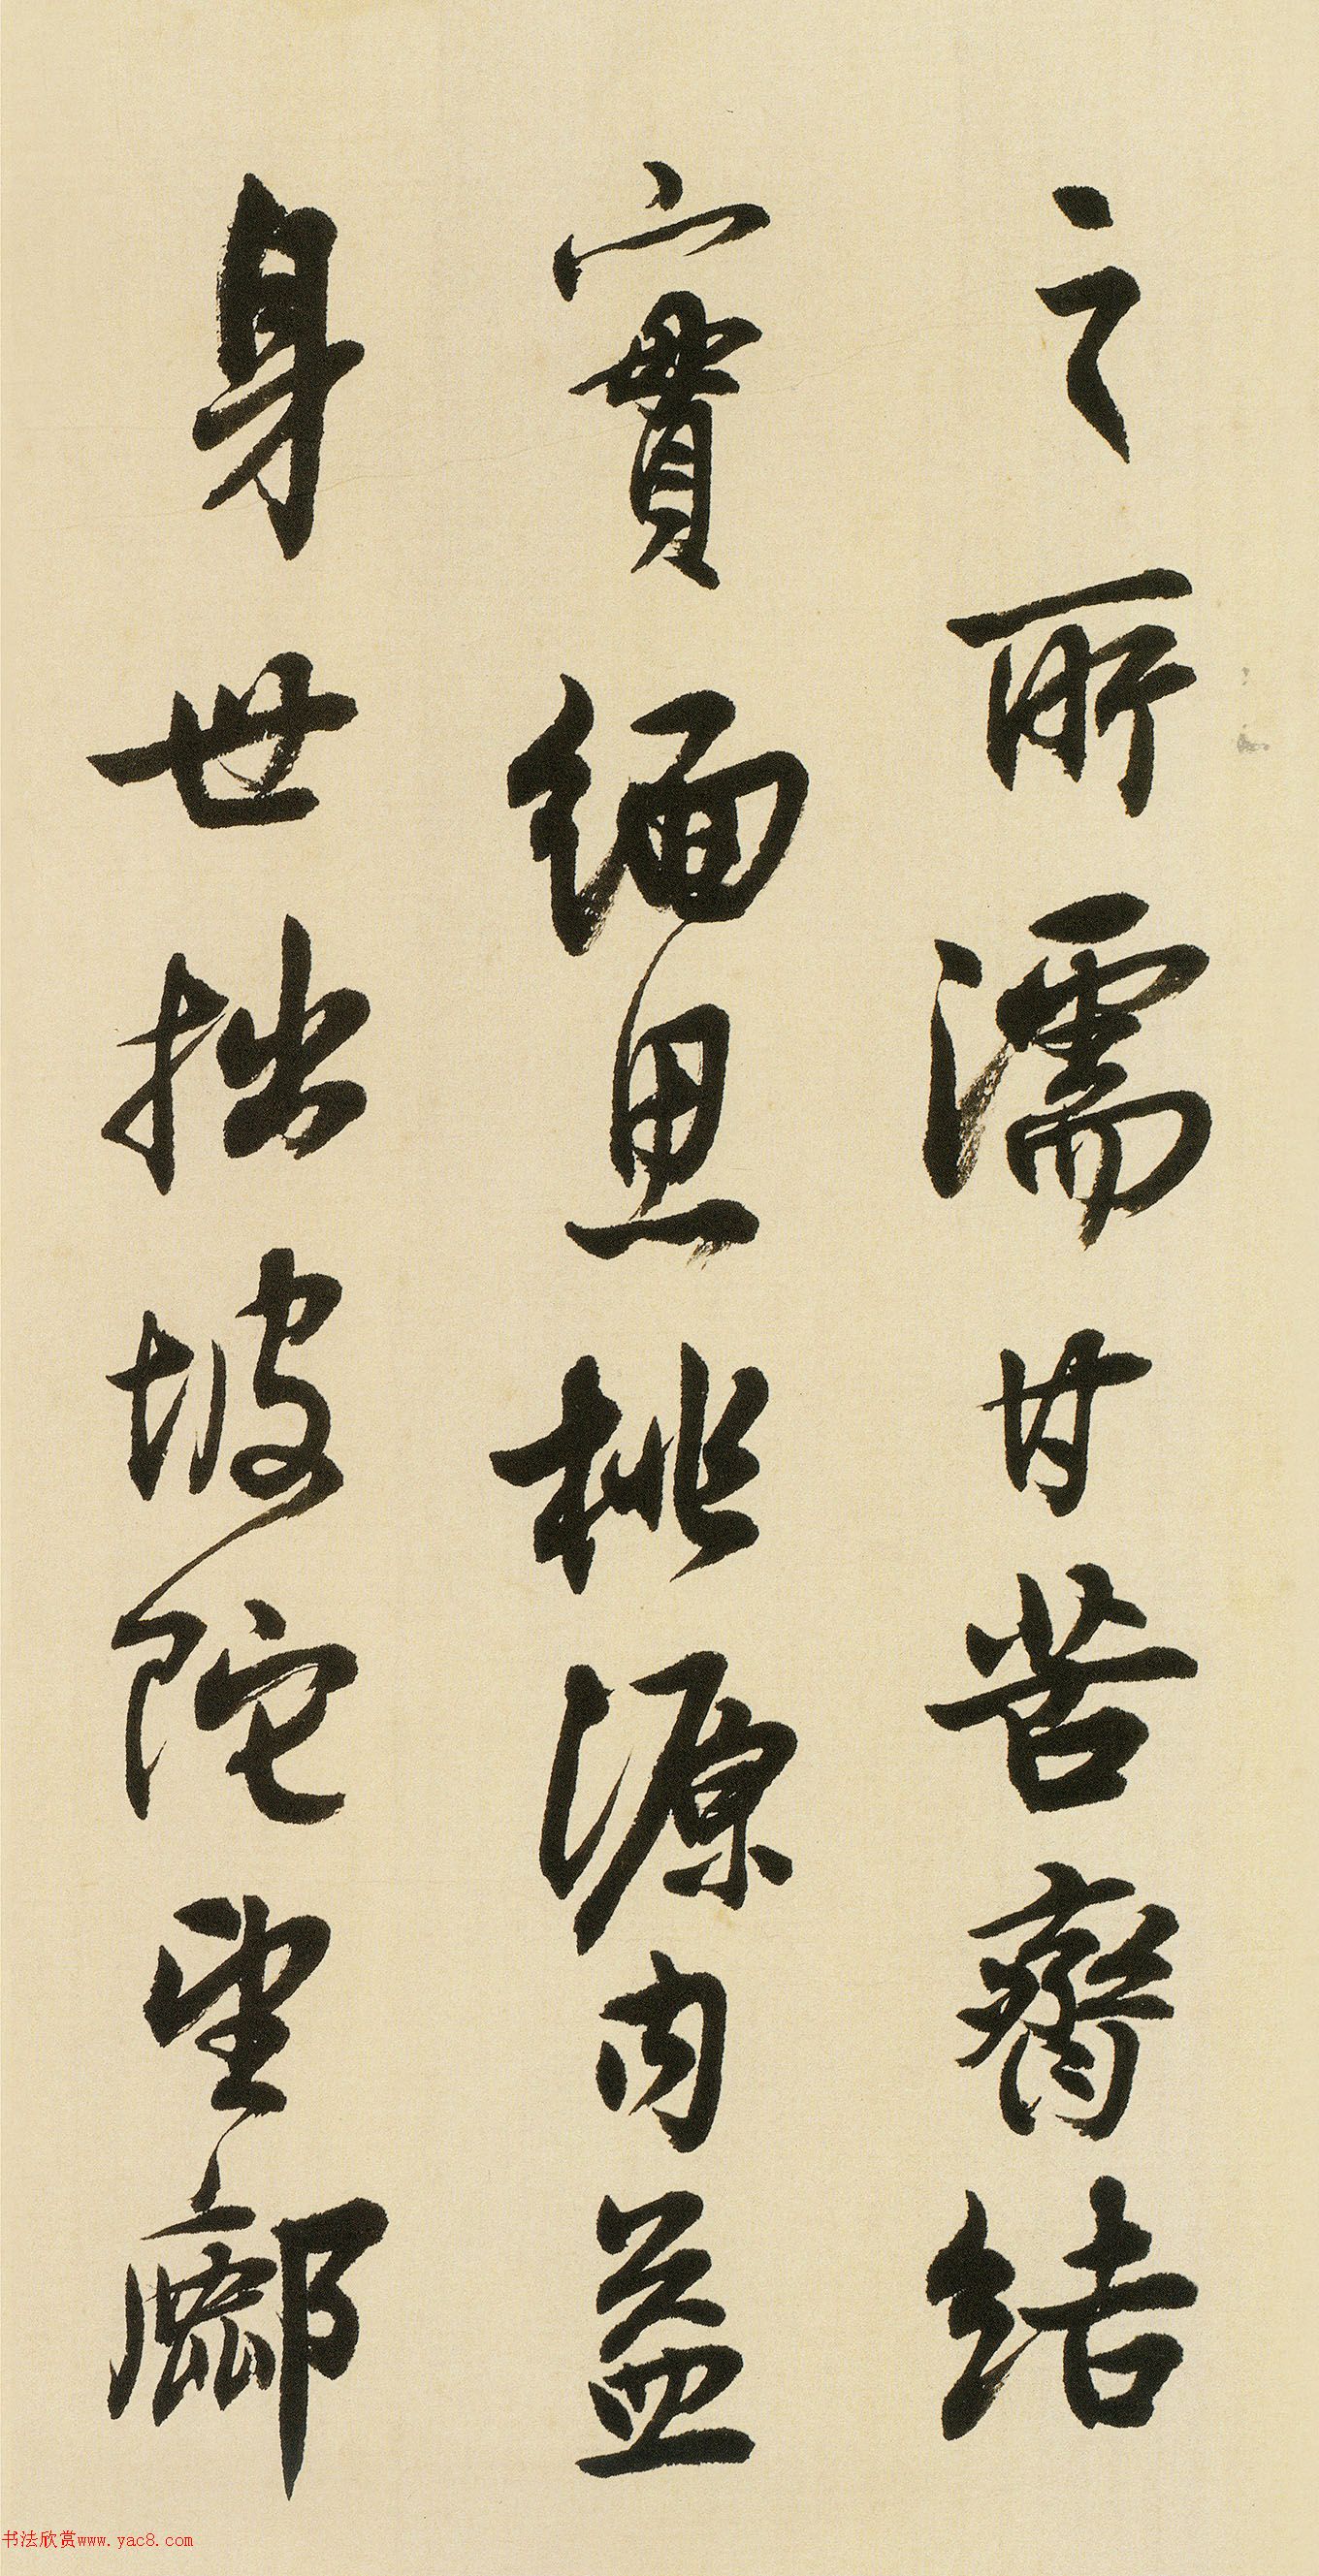 之所濡甘苦齊結
實緬思桃源内益
身世拙坡陀望鄜
书法欣赏www.yac8.com